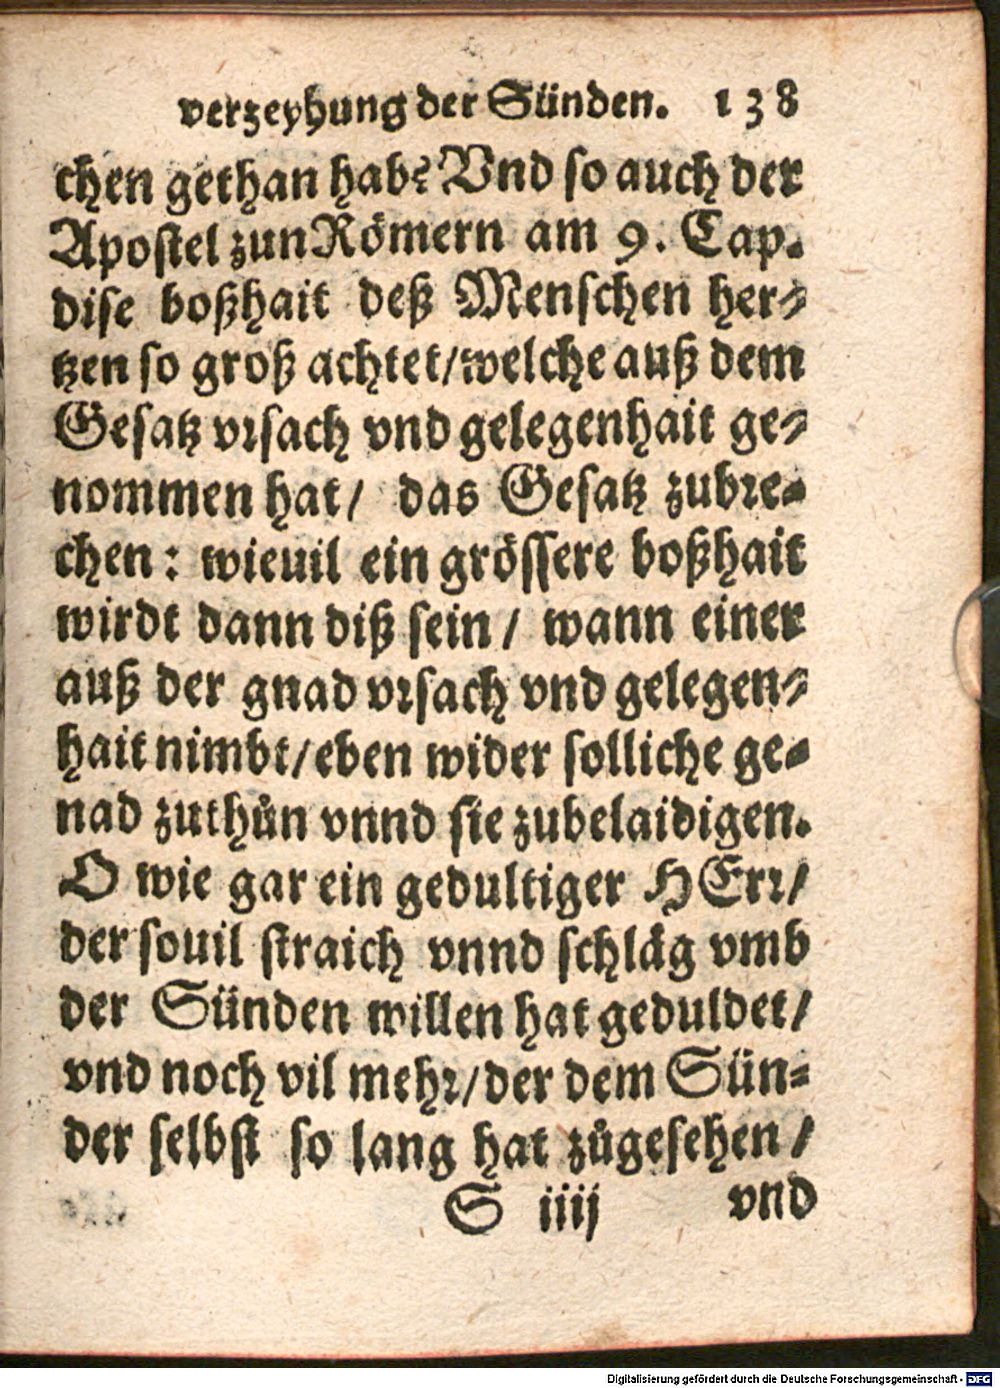 verzeyhung der Sünden. 138
chen gethan hab? Vnd so auch der
Apostel zun Römern am 9. Cap.
dise boßhait deß Menschen her-
tzen so groß achtet/welche auß dem
Gesatz vrsach vnd gelegenhait ge-
nommen hat/ das Gesatz zubre-
chen: wieuil ein grössere boßhait
wirdt dann diß sein/ wann einer
auß der gnad vrsach vnd gelegen-
hait nimbt/eben wider solliche ge-
nad zuthůn vnnd sie zubelaidigen.
O wie gar ein gedultiger HErr/
der souil straich vnnd schläg vmb
der Sünden willen hat geduldet/
vnd noch vil mehr/der dem Sün-
der selbst so lang hat zůgesehen/
S iiij vnd
Digitalisierung gefördert durch die Deutsche Forschungsgemeinschaft - DFG